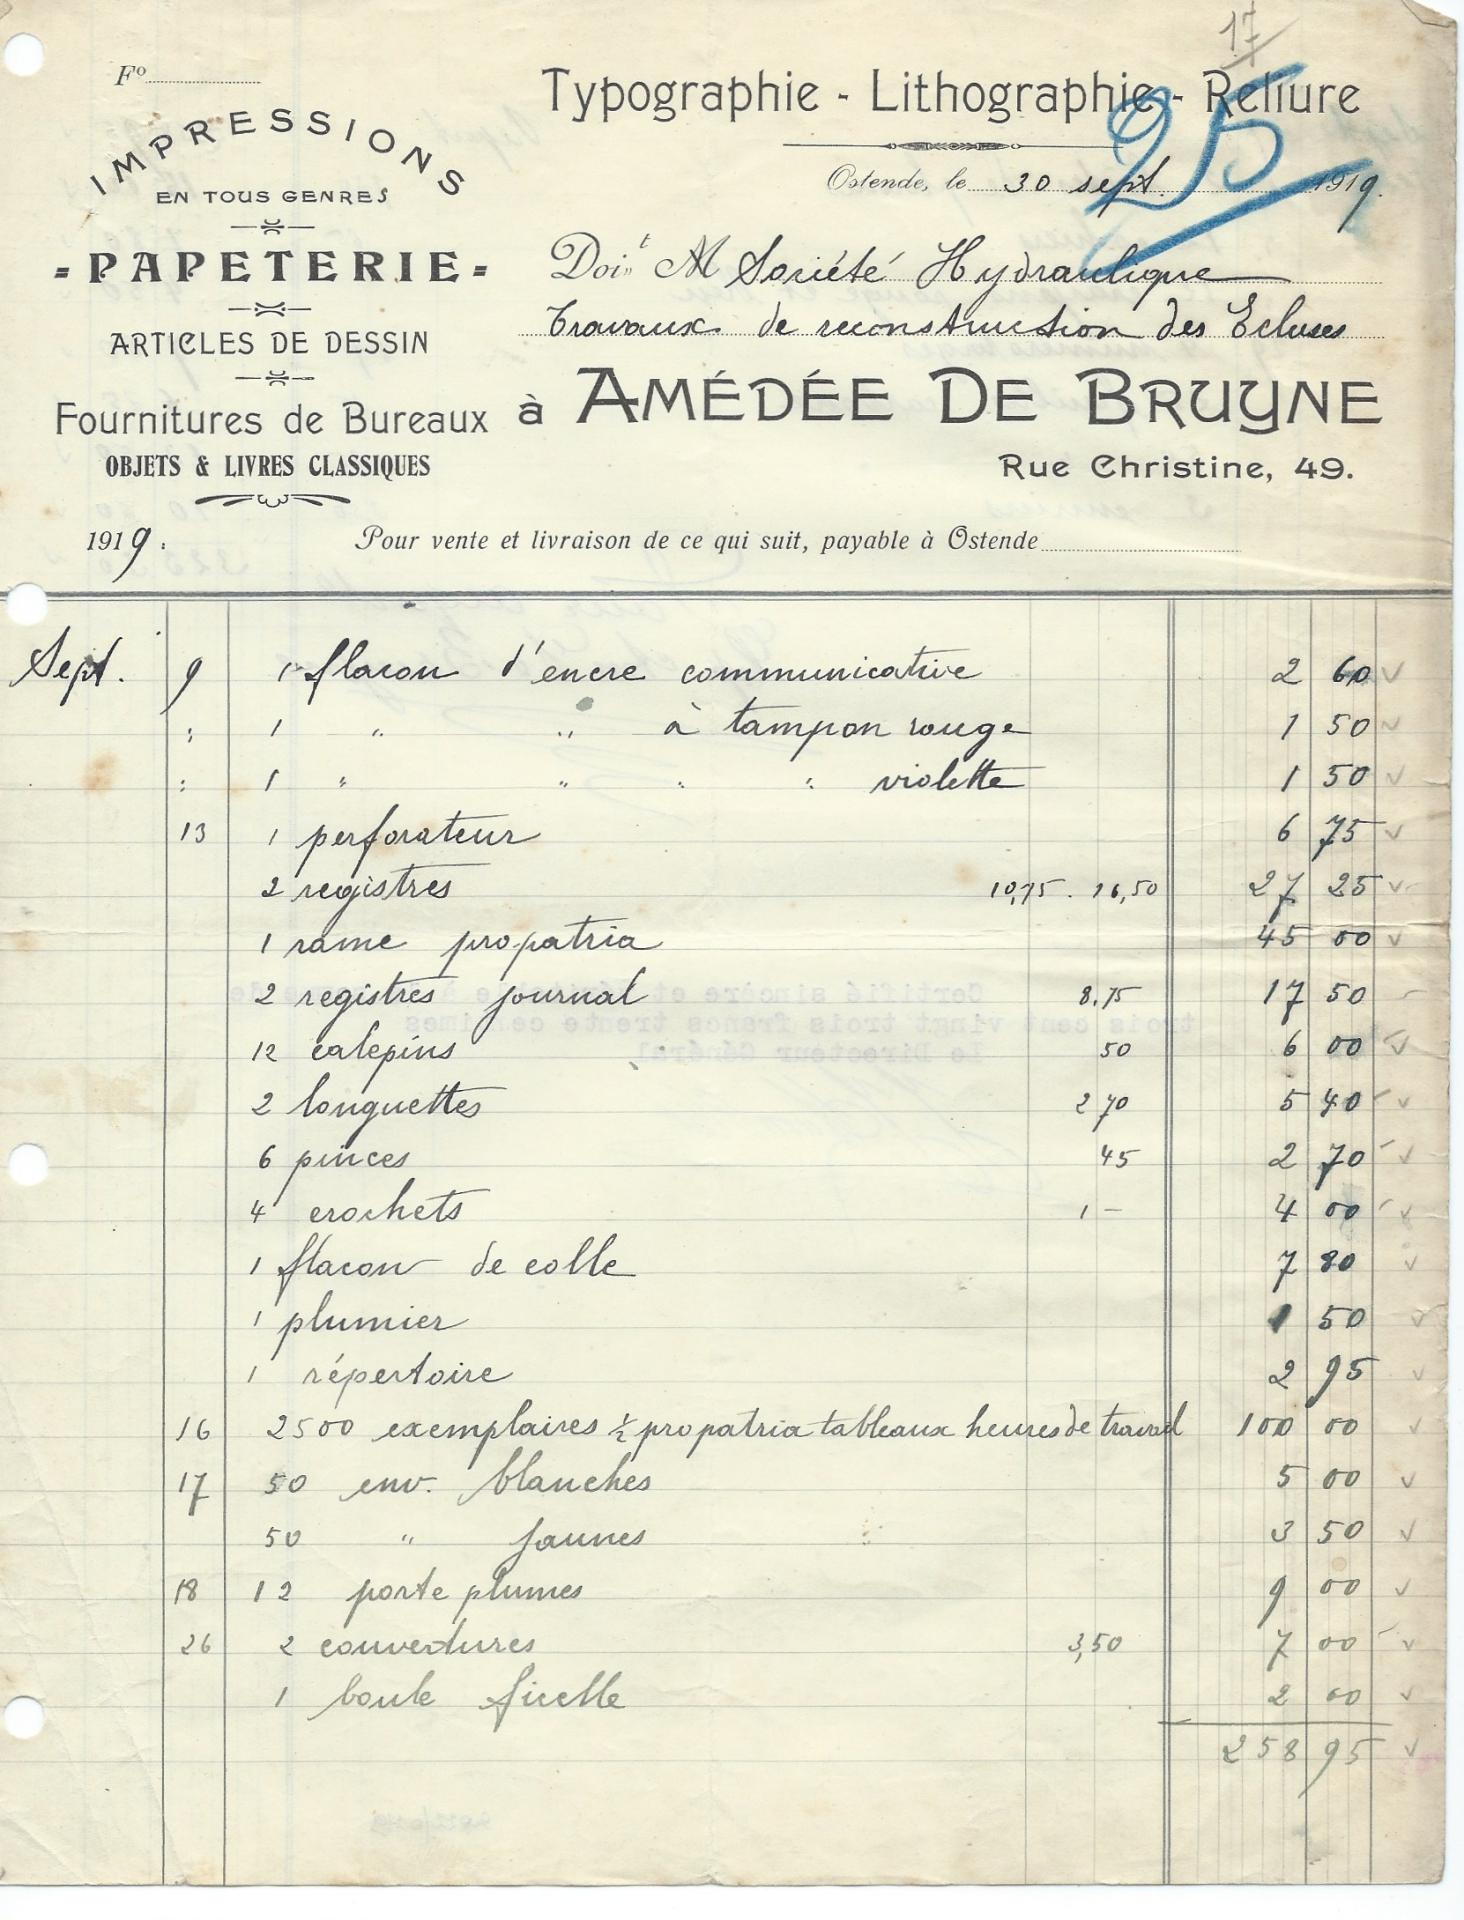 17
Fº
IMPRESSIONS
EN TOUS GENRES
PAPETERIE
ARTICLES DE DESSIN
Fournitures de Bureaux
OBJETS & LIVRES CLASSIQUES
Typographie - Lithographie - Reliure
25
Ostende, le 30 sept. 1919.
Doit M Société Hydraulique
Travaux de reconstruction des Ecluses
à AMÉDÉE DE BRUYNE
Rue Christine, 49.
1919. Pour vente et livraison de ce qui suit, payable à Ostende
Sept. 9 1 flacon d'encre communicative 2 60
" 1 " " à tampon rouge 1 50
" 1 " " " " violette 1 50
13 1 perforateur 6 75
2 registres 10,75 . 16,50 27 25
1 rame propatria 45 00
2 registres journal 8,75 17 50
12 calepins 50 6 00
2 longuettes 2 70 5 40
6 pinces 45 2 70
4 crochets 1 – 4 00
1 flacon de colle 7 80
1 plumier 1 50
1 répertoire 2 95
16 2500 exemplaires ½ propatria tableaux heures de travail 100 00
17 50 env. blanches 5 00
50 " jaunes 3 50
18 12 porte plumes 9 00
26 2 couvertures 3,50 7 00
1 boule ficelle 2 00
258 95
Certifié sincère et
trois cent vingt trois francs trente centimes
Le Directeur Général